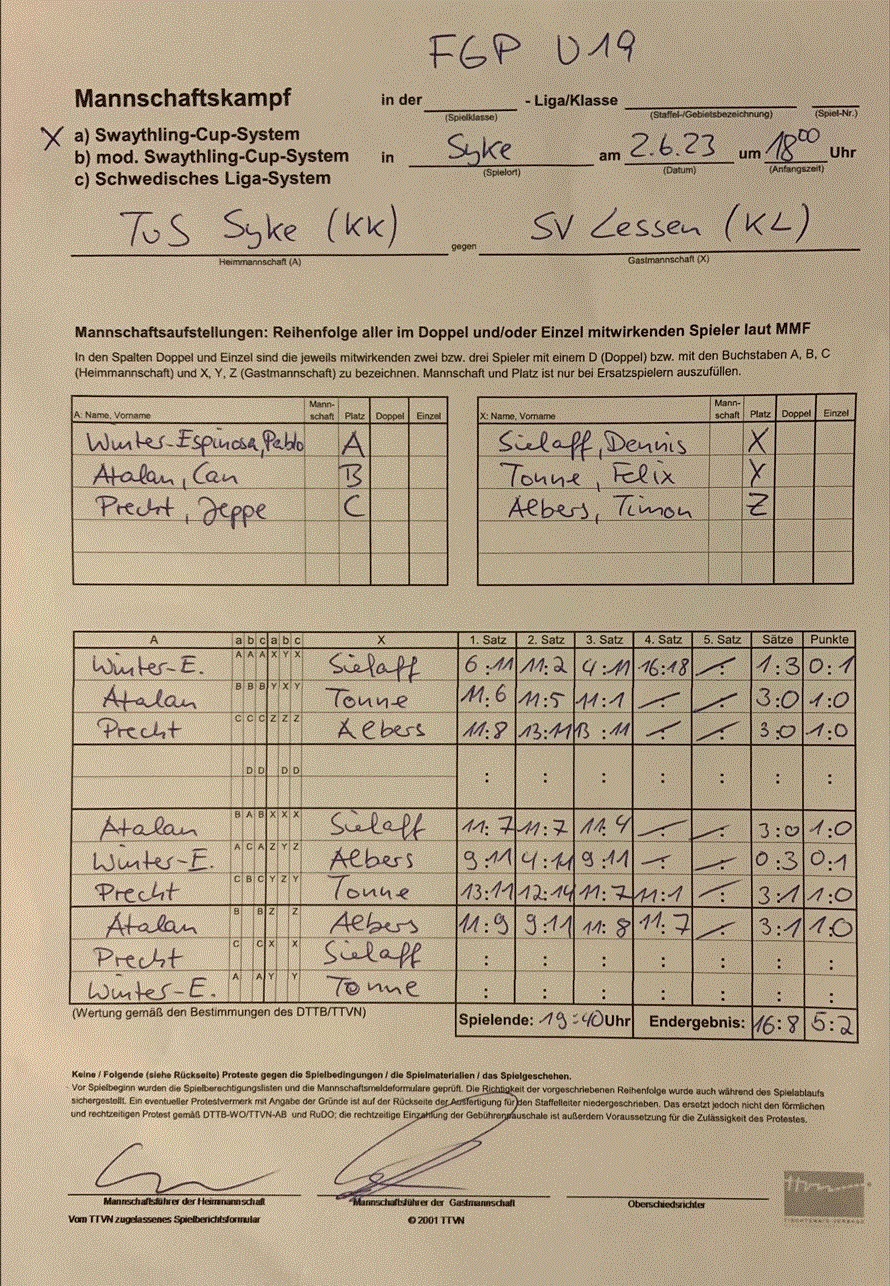 FGP U19
Mannschaftskampf in der - Liga/Klasse
(Spielklasse) (Staffel-/Gebietsbezeichnung) (Spiel-Nr.)
X a) Swaythling-Cup-System
b) mod. Swaythling-Cup-System in Syke am 2.6.23 um 18 00 Uhr
(Spielort) (Datum) (Anfangszeit)
c) Schwedisches Liga-System
TuS Syke (KK) gegen SV Lessen (KL)
Heimmannschaft (A) Gastmannschaft (X)
Mannschaftsaufstellungen: Reihenfolge aller im Doppel und/oder Einzel mitwirkenden Spieler laut MMF
In den Spalten Doppel und Einzel sind die jeweils mitwirkenden zwei bzw. drei Spieler mit einem D (Doppel) bzw. mit den Buchstaben A, B, C
(Heimmannschaft) und X, Y, Z (Gastmannschaft) zu bezeichnen. Mannschaft und Platz ist nur bei Ersatzspielern auszufüllen.
A: Name, Vorname Mann-schaft Platz Doppel Einzel X: Name, Vorname Mann-schaft Platz Doppel Einzel
Winter-Espinosa, Pablo A Sielaff, Dennis X
Atalan, Can B Tonne, Felix Y
Precht, Jeppe C Albers, Timon Z
A a b c a b c X 1. Satz 2. Satz 3. Satz 4. Satz 5. Satz Sätze Punkte
Winter-E. A A A X Y X Sielaff 6:11 11:2 4:11 16:18 : 1:3 0:1
Atalan B B B Y X Y Tonne 11:6 11:5 11:1 : : 3:0 1:0
Precht C C C Z Z Z Albers 11:8 13:11 13:11 : : 3:0 1:0
D D D D : : : : : : :
Atalan B A B X X X Sielaff 11:7 11:7 11:4 : : 3:0 1:0
Winter-E. A C A Z Y Z Albers 9:11 4:11 9:11 : : 0:3 0:1
Precht C B C Y Z Y Tonne 13:11 12:14 11:7 11:1 : 3:1 1:0
Atalan B B Z Z Albers 11:9 9:11 11:8 11:7 : 3:1 1:0
Precht C C X X Sielaff : : : : : : :
Winter-E. A A Y Y Tonne : : : : : : :
(Wertung gemäß den Bestimmungen des DTTB/TTVN) Spielende: 19:40 Uhr Endergebnis: 16:8 5:2
Keine / Folgende (siehe Rückseite) Proteste gegen die Spielbedingungen / die Spielmaterialien / das Spielgeschehen.
Vor Spielbeginn wurden die Spielberechtigungslisten und die Mannschaftsmeldeformulare geprüft. Die Richtigkeit der vorgeschriebenen Reihenfolge wurde auch während des Spielablaufs
sichergestellt. Ein eventueller Protestvermerk mit Angabe der Gründe ist auf der Rückseite der Ausfertigung für den Staffelleiter niedergeschrieben. Das ersetzt jedoch nicht den förmlichen
und rechtzeitigen Protest gemäß DTTB-WO/TTVN-AB und RuDO; die rechtzeitige Einzahlung der Gebührenpauschale ist außerdem Voraussetzung für die Zulässigkeit des Protestes.
Mannschaftsführer der Heimmannschaft Mannschaftsführer der Gastmannschaft Oberschiedsrichter
Vom TTVN zugelassenes Spielberichtsformular © 2001 TTVN
ttvn